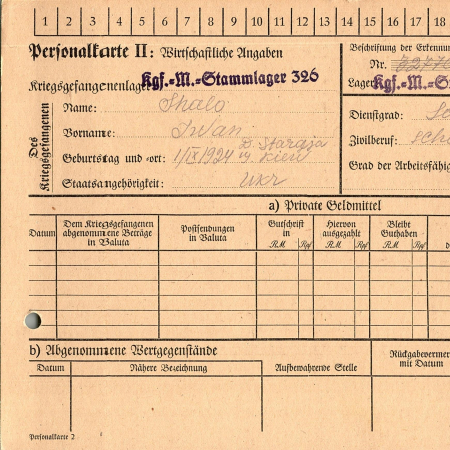 1 2 3 4 5 6 7 8 9 10 11 12 13 14 15 16 17 18
Personalkarte II: Wirtschaftliche Angaben
Beschriftung der Erkennun
Nr.
Kriegsgefangenenlager Kgf.=M.=Stammlager 326
Lager Kgf.=M.=S
Des Kriegsgefangenen
Name: Skalo
Dienstgrad: So
Vorname: Iwan
Zivilberuf: sch
Geburtstag und =ort: 1/IX 1924 D. Staraja
Kiew
Grad der Arbeitsfähig
Staatsangehörigkeit: Ukr
a) Private Geldmittel
Datum
Dem Kriegsgefangenen abgenommene Beträge in Valuta
Postsendungen in Valuta
Gutschrift in
R.M. Rpf
Hiervon ausgezahlt
R.M. Rpf
Bleibt Guthaben
R.M. Rpf
d
b) Abgenommene Wertgegenstände
Datum
Nähere Bezeichnung
Aufbewahrende Stelle
Rückgabeverme
mit Datum
Personalkarte 2